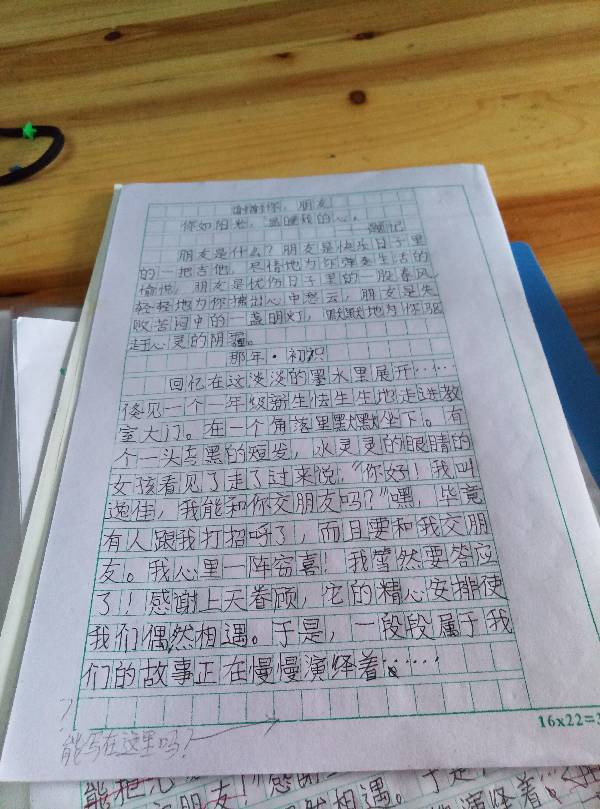 谢谢你，朋友
你如阳光，温暖我的心。
——题记
朋友是什么？朋友是快乐日子里
的一把吉他，尽情地为你弹奏生活的
愉悦，朋友是忧伤日子里的一股春风，
轻轻地为你拂出心中愁云，朋友是失
败苦闷中的一盏明灯，默默地为你驱
赶心灵的阴霾。
那年·初识
回忆在这淡淡的墨水里展开……
见一个一年级新生怯生生地走进教
室大门。在一个角落里默默坐下。有
个一头乌黑的短发，水灵灵的眼睛的
女孩看见了走了过来说："你好！我叫
逸佳，我能和你交朋友吗？"嘿，毕竟
有人跟我打招呼了，而且要和我交朋
友。我心里一阵窃喜！我当然要答应
了！感谢上天眷顾，它的精心安排使
我们偶然相遇。于是，一段段属于我
们的故事正在慢慢演绎着。……
？
能写在这里吗？
16x22=3
感谢
然相遇。于是
演绎着。